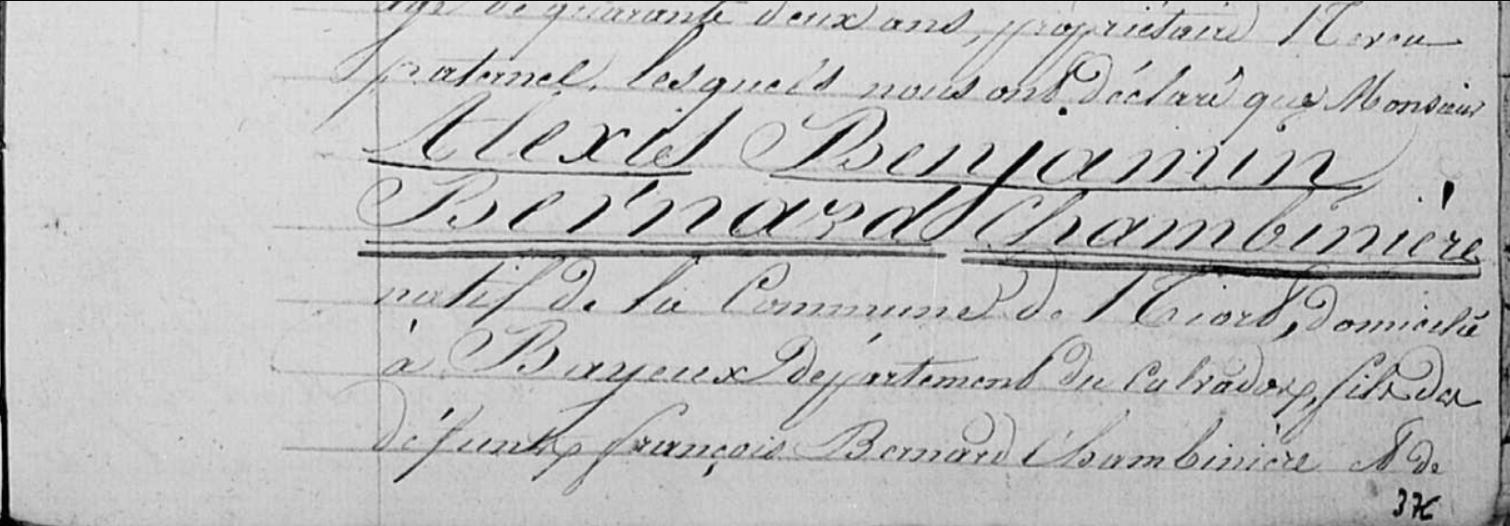 agé de quarante deux ans, propriétaire Neveu
paternel, lesquels nous ont déclaré que Monsieur
Alexis Benjamin
Bernard Chambinière
natif de la Commune de Niort, domicilié
à Bayeux département du Calvados, fils de
défunts françois Bernard Chambinière et de
376